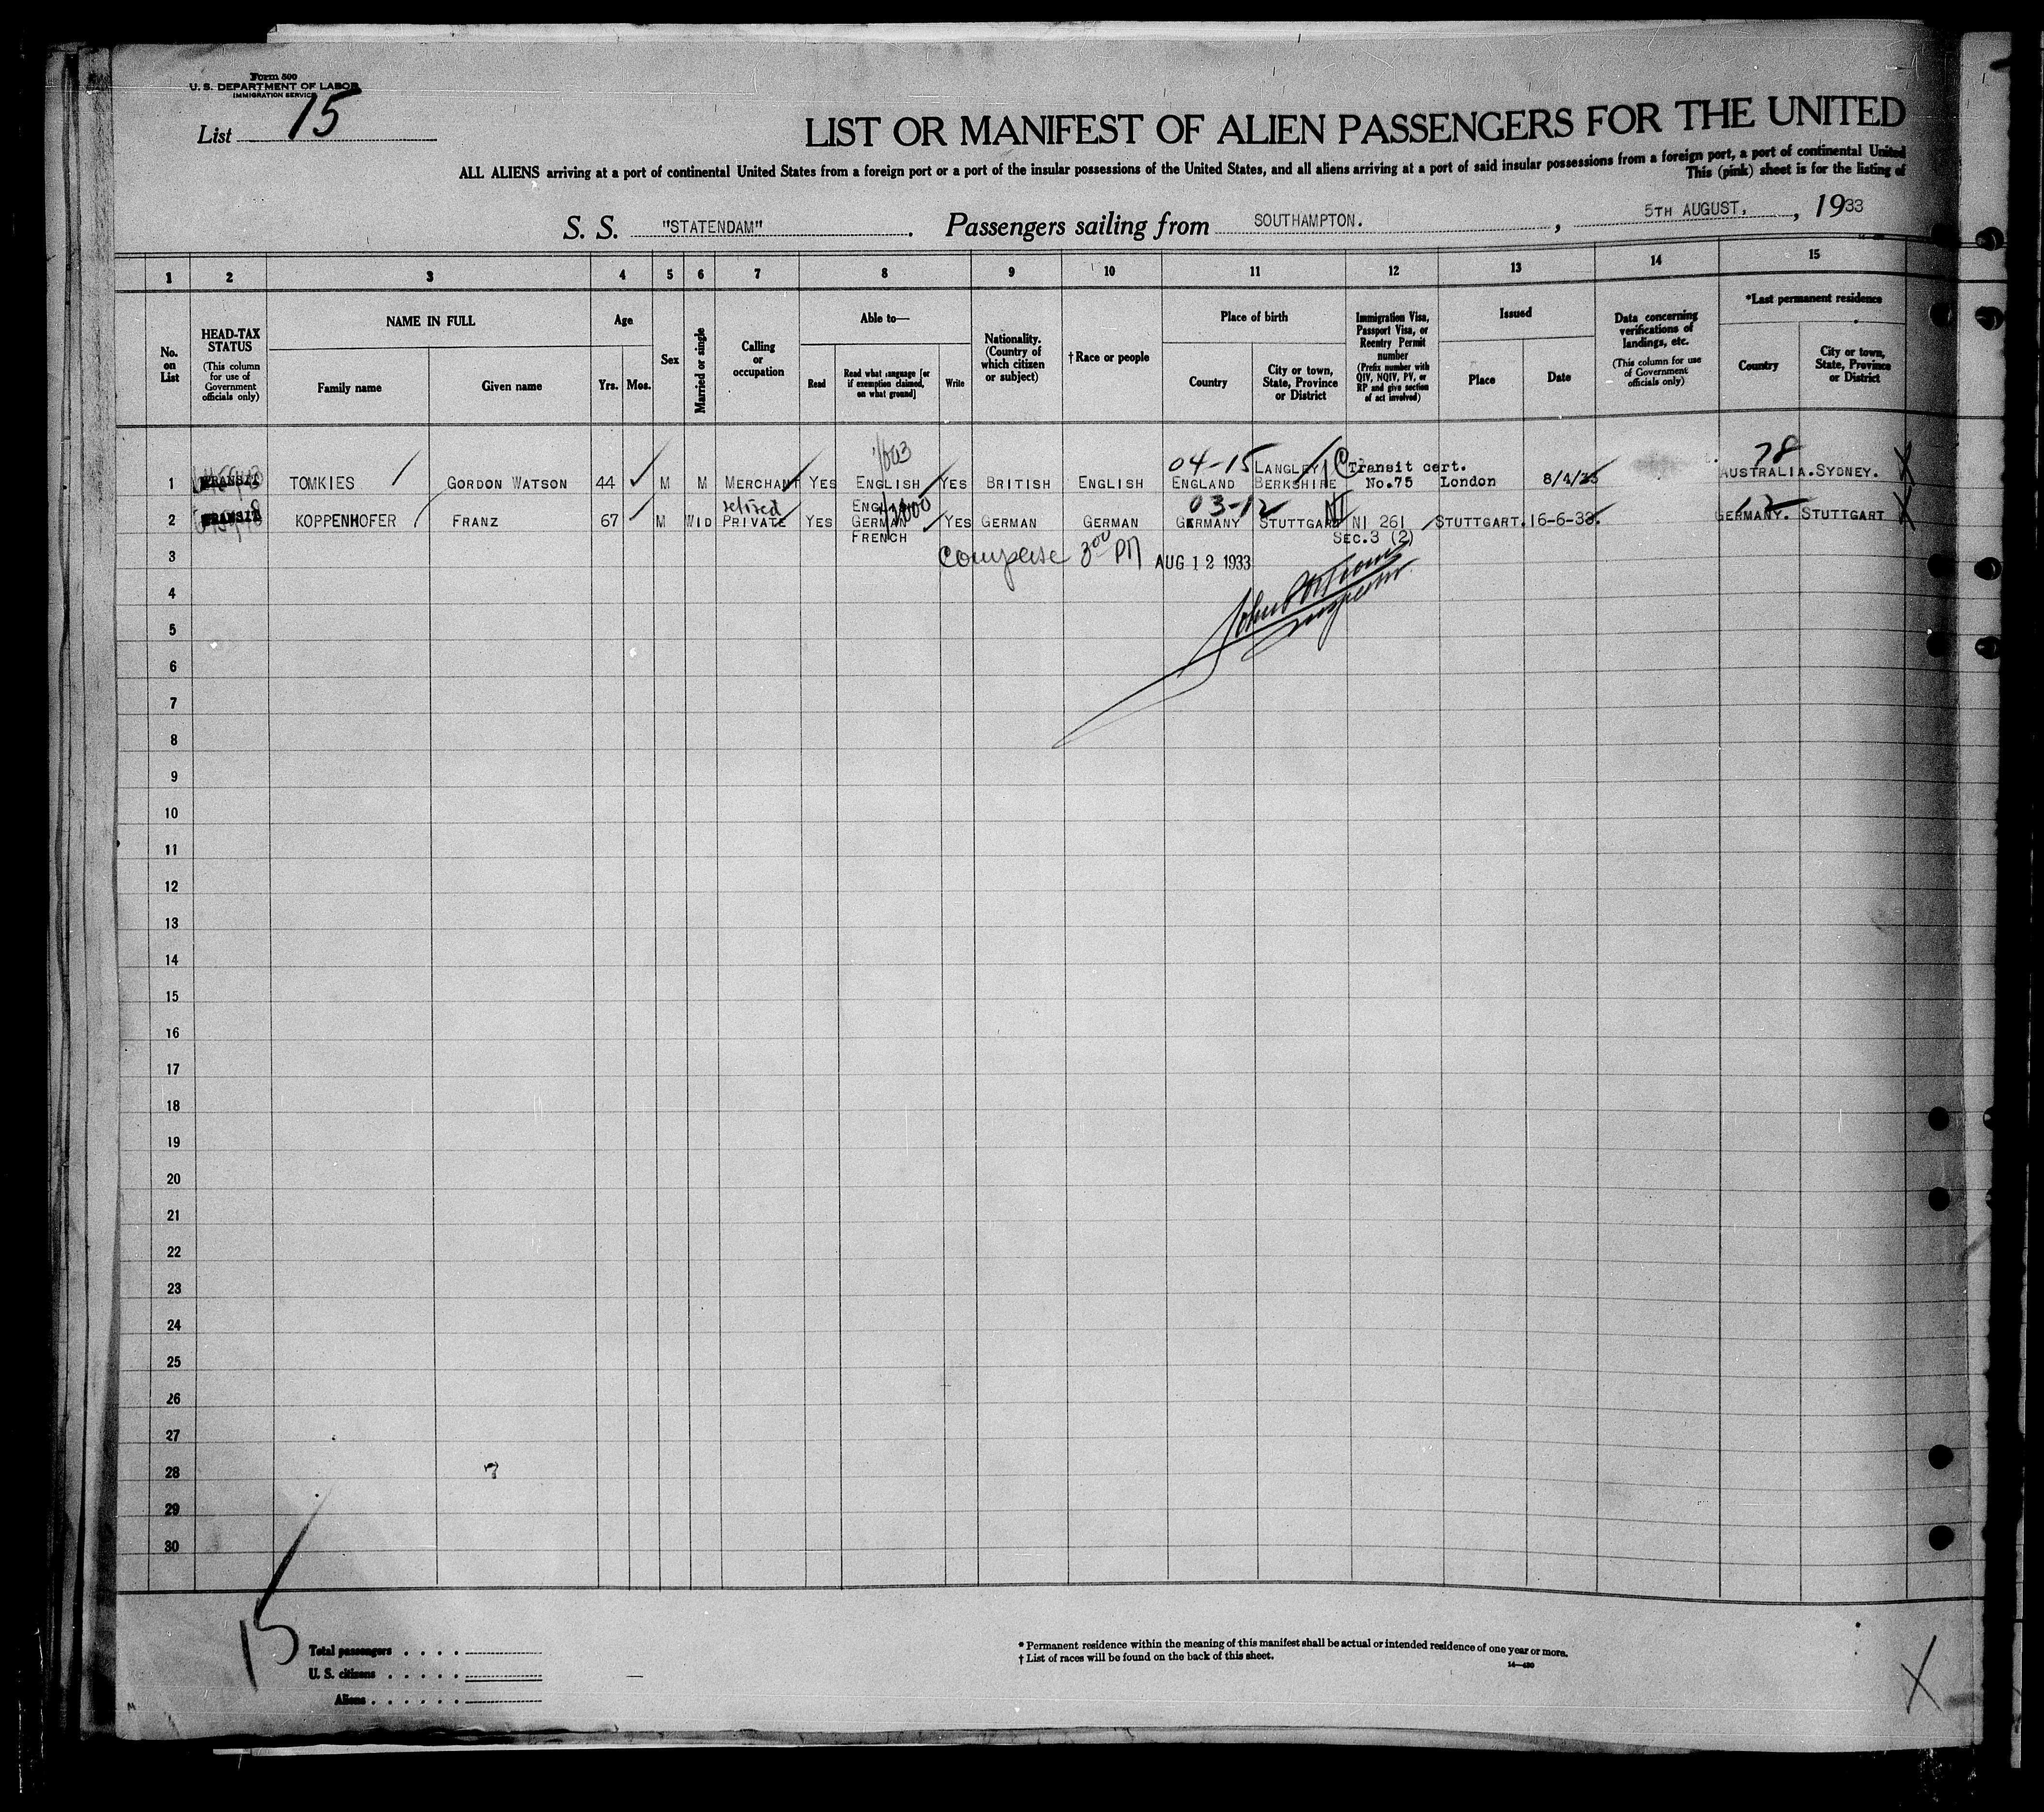 Form 500
U. S. DEPARTMENT OF LABOR
IMMIGRATION SERVICE
List 15
LIST OR MANIFEST OF ALIEN PASSENGERS FOR THE UNITED
ALL ALIENS arriving at a port of continental United States from a foreign port or a port of the insular possessions of the United States, and all aliens arriving at a port of said insular possessions from a foreign port, a port of continental United
This (pink) sheet is for the listing of
S. S. "STATENDAM" . Passengers sailing from SOUTHAMPTON. , 5TH AUGUST, , 1933
1 2 3 4 5 6 7 8 9 10 11 12 13 14 15
No. on List
HEAD-TAX STATUS
(This column for use of Government officials only)
NAME IN FULL
Family name
Given name
Age
Yrs. Mos.
Sex
Married or single
Calling or occupation
Able to—
Read
Read what language [or if exemption claimed, on what ground]
Write
Nationality. (Country of which citizen or subject)
†Race or people
Place of birth
Country
City or town, State, Province or District
Immigration Visa, Passport Visa, or Reentry Permit number
(Prefix number with QIV, NQIV, PV, or RP and give section of act involved)
Issued
Place
Date
Data concerning verifications of landings, etc.
(This column for use of Government officials only)
*Last permanent residence
Country
City or town, State, Province or District
04-15 LANGLEY Transit cert. 78
1 TRANSIT TOMKIES GORDON WATSON 44 M M MERCHANT YES ENGLISH YES BRITISH ENGLISH ENGLAND BERKSHIRE No.75 London 8/4/33 AUSTRALIA. SYDNEY.
retired 03-12 NI 12
2 TRANSIT KOPPENHOFER FRANZ 67 M WID PRIVATE YES GERMAN YES GERMAN GERMAN GERMANY STUTTGART NI 261 STUTTGART. 16-6-33. GERMANY. STUTTGART
FRENCH SEC.3 (2)
3 3 00 PM AUG 12 1933
4
Inspector
5
6
7
8
9
10
11
12
13
14
15
16
17
18
19
20
21
22
23
24
25
26
27
28
29
30
15
Total passengers
U. S. citizens
Aliens
* Permanent residence within the meaning of this manifest shall be actual or intended residence of one year or more.
† List of races will be found on the back of this sheet.
14—430
X